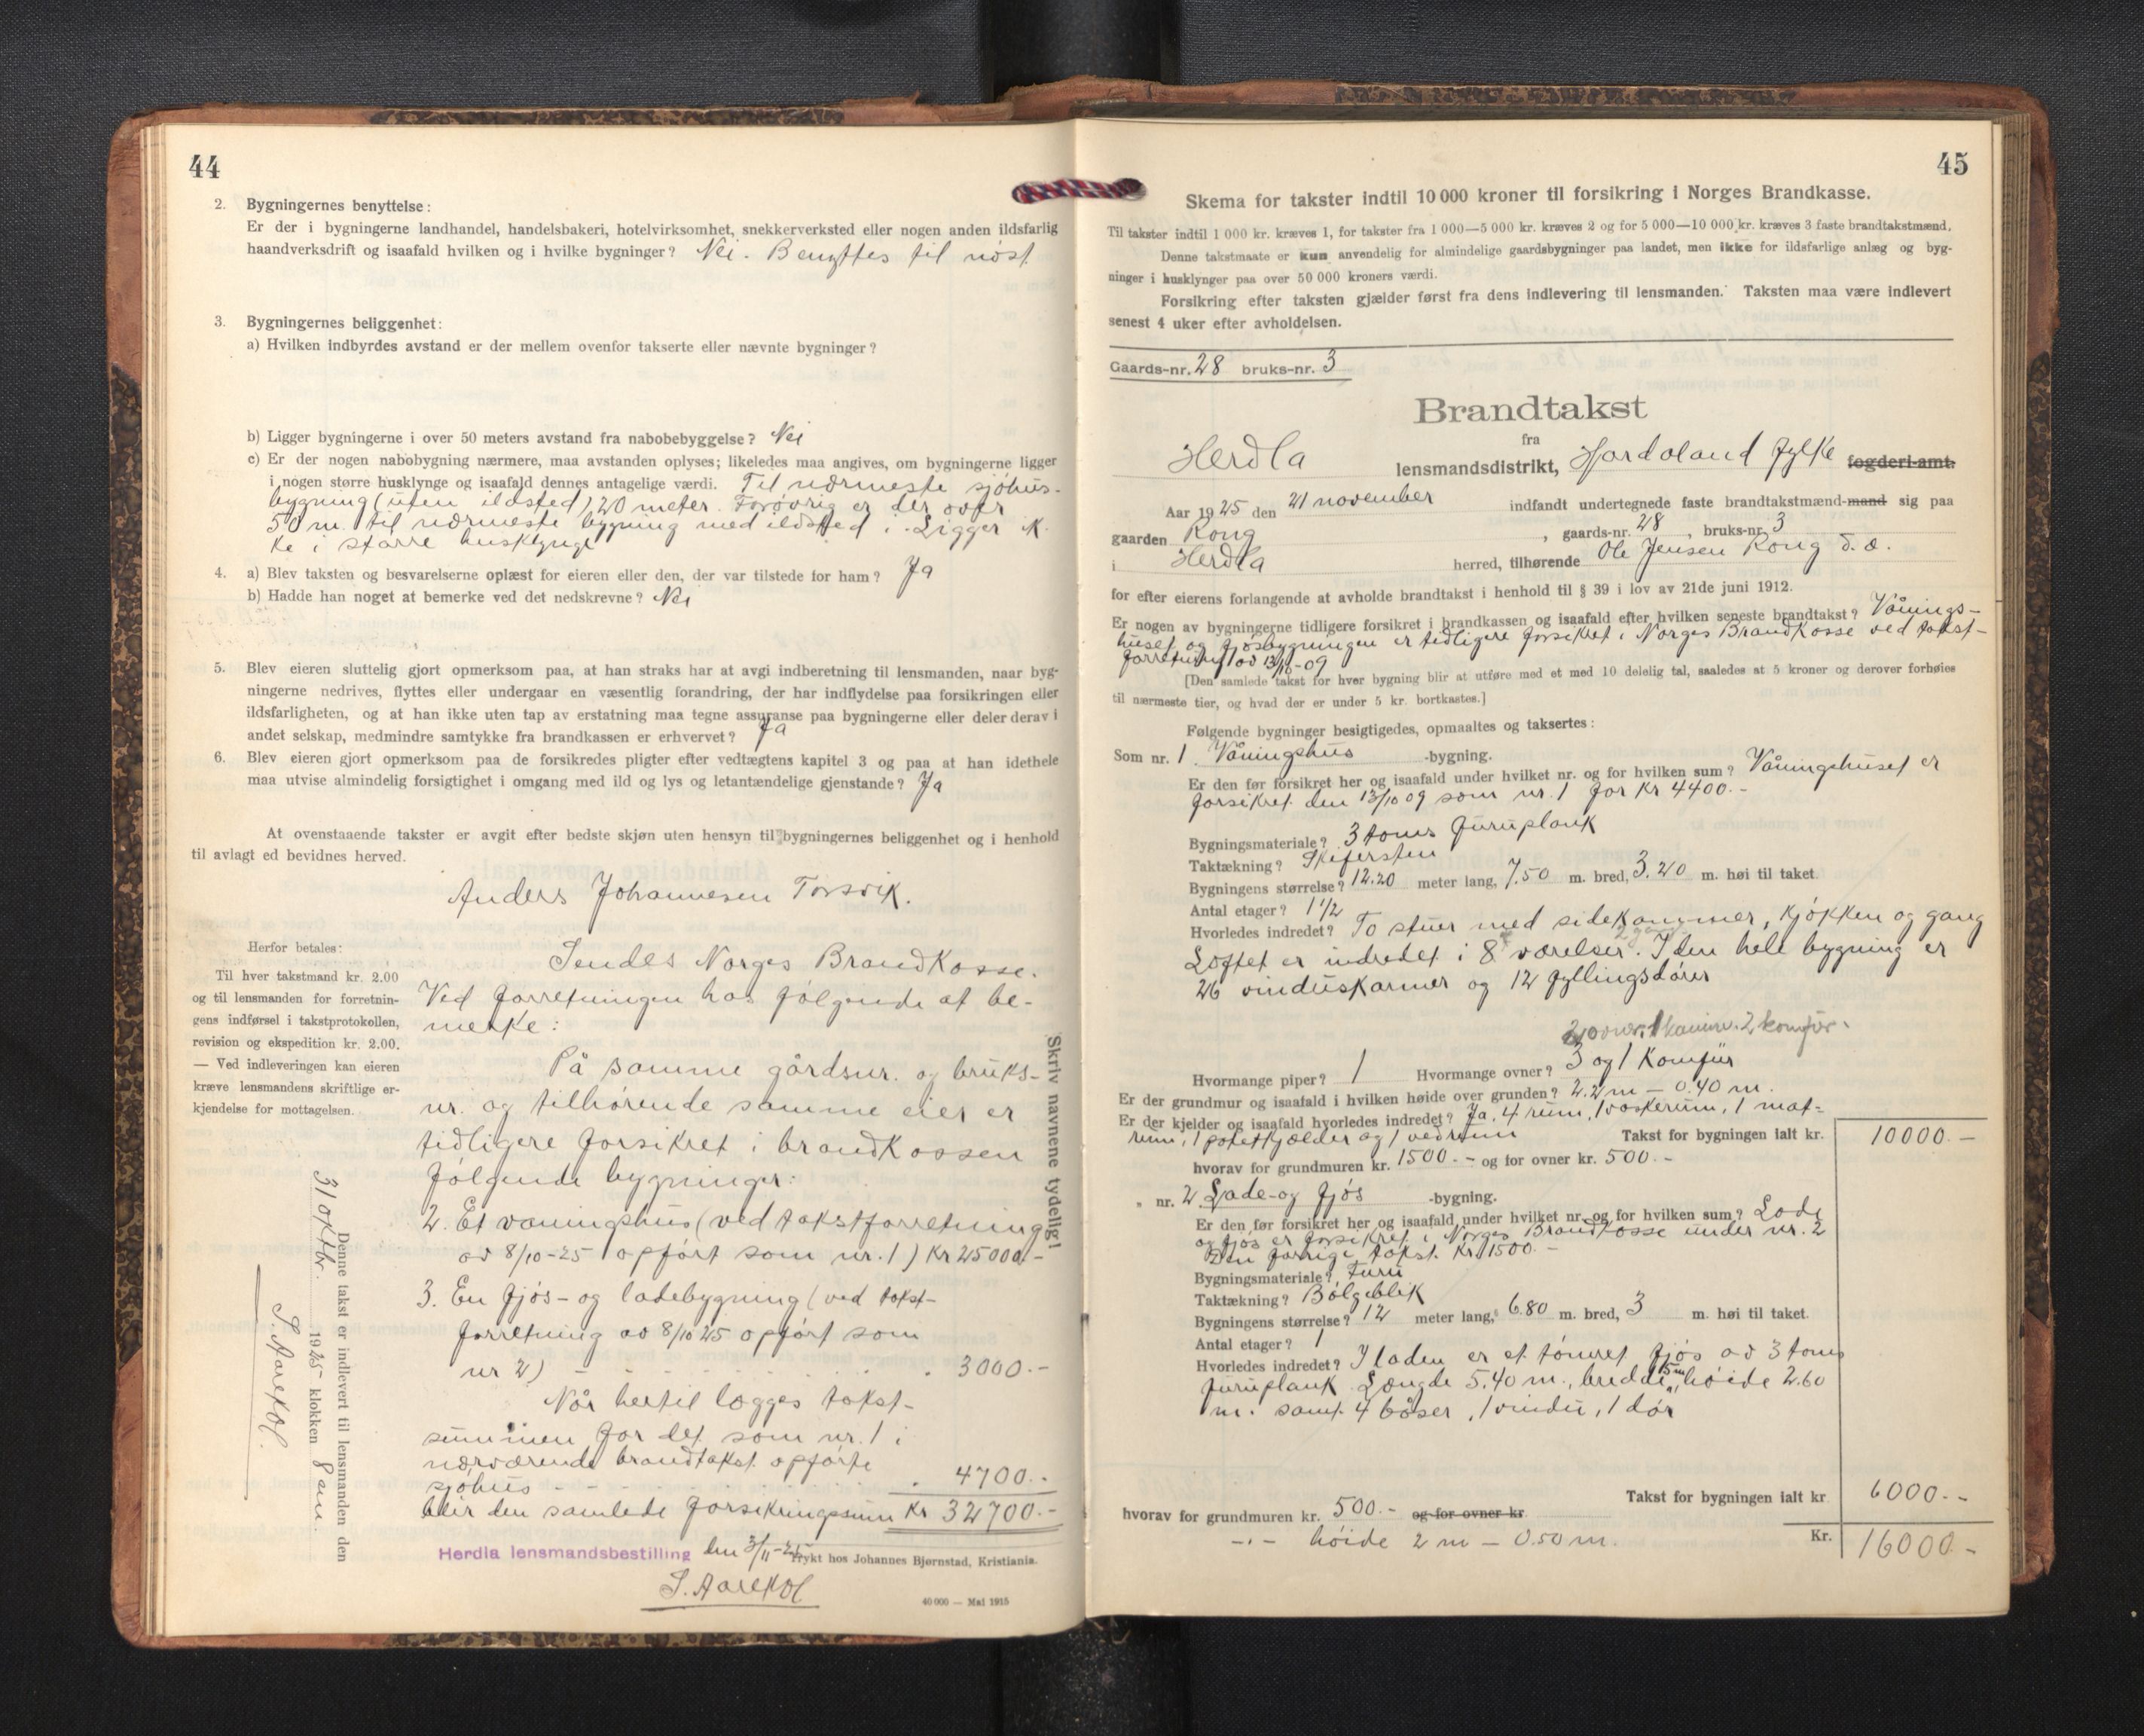 44
2. Bygningernes benyttelse:
Er der i bygningerne landhandel, handelsbakeri, hotelvirksomhet, snekkerverksted eller nogen anden ildsfarlig
haandverksdrift og isaafald hvilken og i hvilke bygninger? Nei. Benyttes til nøst
3. Bygningernes beliggenhet:
a) Hvilken indbyrdes avstand er der mellem ovenfor takserte eller nævnte bygninger?
b) Ligger bygningerne i over 50 meters avstand fra nabobebyggelse? Nei
c) Er der nogen nabobygning nærmere, maa avstanden oplyses; likeledes maa angives, om bygningerne ligger
i nogen større husklynge og isaafald dennes antagelige værdi. Til nærmeste sjøhus-
bygning (uten ildsted) 20 meter. Forøvrig er der over
50 m. til nærmeste bygning med ildsted. Ligger ik-
ke i større husklynge
4. a) Blev taksten og besvarelserne oplæst for eieren eller den, der var tilstede for ham? Ja
b) Hadde han noget at bemerke ved det nedskrevne? Nei
5. Blev eieren sluttelig gjort opmerksom paa, at han straks har at avgi indberetning til lensmanden, naar byg-
ningerne nedrives, flyttes eller undergaar en væsentlig forandring, der har indflydelse paa forsikringen eller
ildsfarligheten, og at han ikke uten tap av erstatning maa tegne assuranse paa bygningerne eller deler derav i
andet selskap, medmindre samtykke fra brandkassen er erhvervet? Ja
6. Blev eieren gjort opmerksom paa de forsikredes pligter efter vedtægtens kapitel 3 og paa at han idethele
maa utvise almindelig forsigtighet i omgang med ild og lys og letantændelige gjenstande? Ja
At ovenstaaende takster er avgit efter bedste skjøn uten hensyn til bygningernes beliggenhet og i henhold
til avlagt ed bevidnes herved.
Anders Johannesen Torsvik.
Herfor betales:
Til hver takstmand kr. 2.00
og til lensmanden for forretnin-
gens indførsel i takstprotokollen,
revision og ekspedition kr. 2.00.
— Ved indleveringen kan eieren
kræve lensmandens skriftlige er-
kjendelse for mottagelsen.
Sendes Norges Brandkasse.
Ved forretningen has følgende at be-
merke:
På samme gårdsnr. og bruks-
nr. og tilhørende samme eier er
tidligere forsikret i brandkassen
følgende bygninger:
2. Et vaningshus (ved takstforretning
av 8/10-25 opført som nr. 1) Kr 25000.-
3. En fjøs- og ladebygning (ved takst-
forretning av 8/10 25 opført som
nr 2) - - - - - . 3000.-
Når hertil lægges takst-
summen for det som nr. 1 i
nærværende brandtakst opførte
sjøhus - - - - . 4700.-
blir den samlede forsikringssum Kr 32700.-
Herdla lensmandsbestilling den 3/11-25
Trykt hos Johannes Bjørnstad, Kristiania.
40 000 — Mai 1915
Skriv navnene tydelig!
Denne takst er indlevert til lensmanden den
31 oktbr. 1925 klokken 8 em.
45
Skema for takster indtil 10 000 kroner til forsikring i Norges Brandkasse.
Til takster indtil 1 000 kr. kræves 1, for takster fra 1 000—5 000 kr. kræves 2 og for 5 000—10 000 kr. kræves 3 faste brandtakstmænd.
Denne takstmaate er kun anvendelig for almindelige gaardsbygninger paa landet, men ikke for ildsfarlige anlæg og byg-
ninger i husklynger paa over 50 000 kroners værdi.
Forsikring efter taksten gjælder først fra dens indlevering til lensmanden. Taksten maa være indlevert
senest 4 uker efter avholdelsen.
Gaards-nr. 28 bruks-nr. 3
Brandtakst
fra
Herdla lensmandsdistrikt, Hordaland fylke fogderi-amt.
Aar 1925 den 21 november indfandt undertegnede faste brandtakstmænd-mand sig paa
gaarden Rong, gaards-nr. 28, bruks-nr. 3
i Herdla herred, tilhørende Ole Jensen Rong d.æ.
for efter eierens forlangende at avholde brandtakst i henhold til § 39 i lov av 21de juni 1912.
Er nogen av bygningerne tidligere forsikret i brandkassen og isaafald efter hvilken seneste brandtakst? Vånings-
huset og fjøsbygningen er tidligere forsikret i Norges Brandkasse ved takst-
forretning av 13/10-09
[Den samlede takst for hver bygning blir at utføre med et med 10 delelig tal, saaledes at 5 kroner og derover forhøies
til nærmeste tier, og hvad der er under 5 kr. bortkastes.]
Følgende bygninger besigtigedes, opmaaltes og taksertes:
Som nr. 1 Våningshus -bygning.
Er den før forsikret her og isaafald under hvilket nr. og for hvilken sum? Våningshuset er
forsikret den 13/10 09 som nr. 1 for kr 4400.-
Bygningsmateriale? 3 toms furuplank
Taktækning? Skifersten
Bygningens størrelse? 12.20 meter lang, 7.50 m. bred, 3.20 m. høi til taket.
Antal etager? 1 1/2
Hvorledes indredet? To stuer med sidekammer, kjøkken og gang
Loftet er indredet i 8 værelser. I den hele bygning er
26 vinduskarmer og 12 fyllingsdører
Hvormange piper? 1 Hvormange ovner? 3 og 1 Komfur
Er der grundmur og isaafald i hvilken høide over grunden? 2.2 m - 0.40 m.
Er der kjelder og isaafald hvorledes indredet? Ja. 4 rum, 1 vaskerum, 1 mat-
rum, 1 potetkjælder og 1 vedrum Takst for bygningen ialt kr. 10000.-
hvorav for grundmuren kr. 1500.- og for ovner kr. 500.-
„ nr. 2 Lade- og fjøs -bygning.
Er den før forsikret her og isaafald under hvilket nr. og for hvilken sum? Lade
og fjøs er forsikret i Norges Brandkasse under nr. 2
Den forrige takst. Kr. 1500.-
Bygningsmateriale? Furu
Taktækning? Bølgeblik
Bygningens størrelse? 12 meter lang, 6.80 m. bred, 3 m. høi til taket.
Antal etager? 1
Hvorledes indredet? I laden er et tømret fjøs av 3 toms
furuplank. Længde 5.40 m., bredde 5 m, høide 2.60
m. samt 4 båser, 1 vindu, 1 dør
Takst for bygningen ialt kr 6000.-
hvorav for grundmuren kr. 500.- og for ovner kr
-"- høide 2 m - 0.50 m. Kr. 16000.-